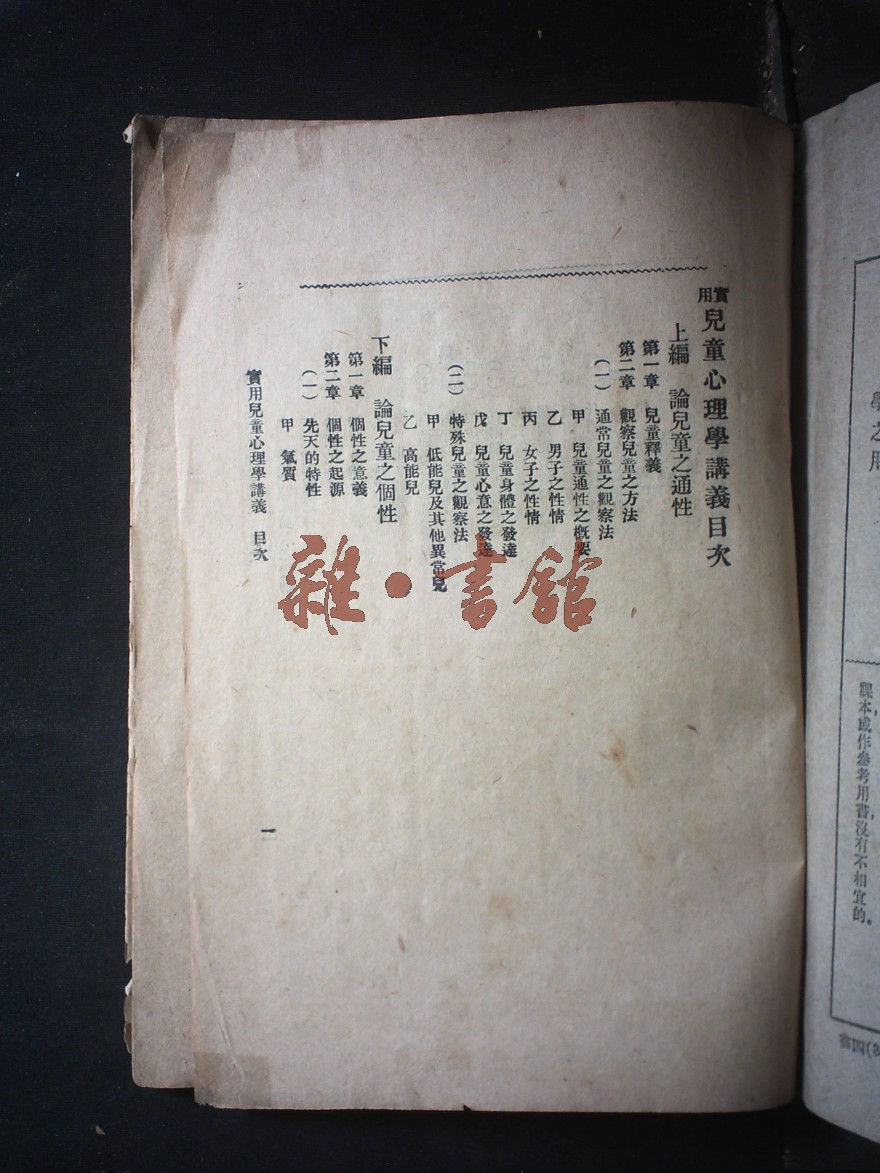 學之用
課本或作參考用書,沒有不相宜的。
實用兒童心理學講義目次
上編　論兒童之通性
第一章　兒童釋義
第二章　觀察兒童之方法
(一)　通常兒童之觀察法
甲　兒童通性之概要
乙　男子之性情
丙　女子之性情
丁　兒童身體之發達
戊　兒童心意之發達
(二)　特殊兒童之觀察法
甲　低能兒及其他異常兒
乙　高能兒
下編　論兒童之個性
第一章　個性之意義
第二章　個性之起源
(一)　先天的特性
甲　氣質
實用兒童心理學講義　目次
一
雜·書館